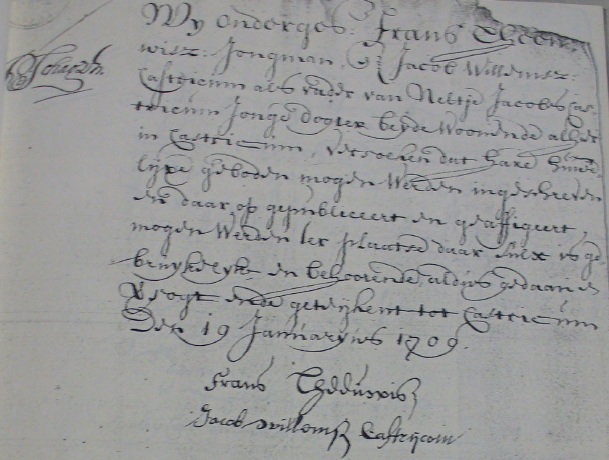 Wy onderges: Frans
wisz: Jongman, & Jacob Willemsz:
Castricum als vader van Neltje Jacobs Cas-
tricum Jonge dogter beyde Woonende alhier
in Castricum, versoeken dat hare huwe-
lijxe geboden mogen Werden ingeschreven
en daar op gepubliceert en geaffigeert,
mogen Werden ter plaatse daar sulx is ge-
bruykelyk en behoorende, aldus gedaan en
getekent tot Castricum
Den 19 Januaryus 1709.
Frans
Jacob willemsz Castricom